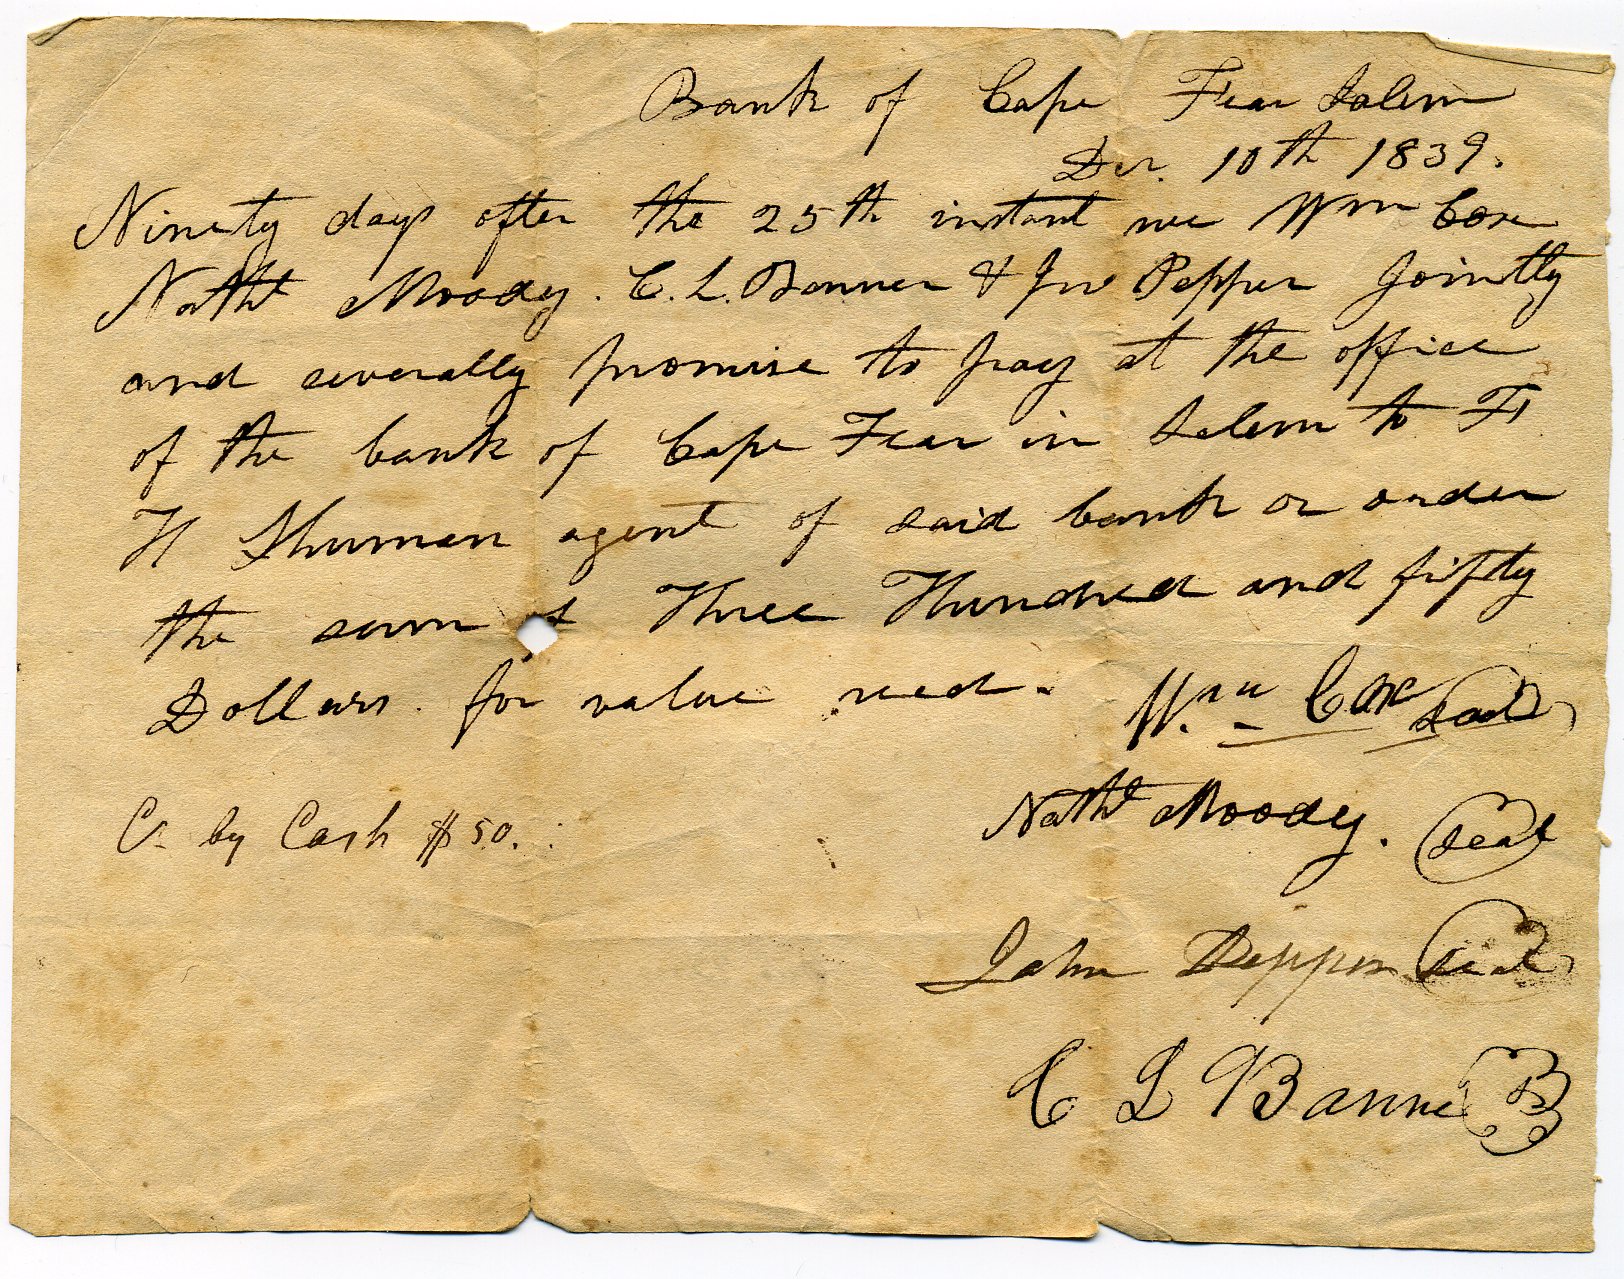 Bank of Cape Fear Salem
Dec. 10th 1839.
Ninety days after the 25th instant we Wm Cox
Nathl Moody. C. L. Banner & Jno Pepper Jointly
and severally promise to pay at the office
of the bank of Cape Fear in Salem to F
H Shuman agent of said bank or order
the sum of Three Hundred and fifty
Dollars. for value recd.
Wm Cox Seal
Nathl Moody. Seal
John Pepper Seal
C L Banner
Cr by Cash $50.